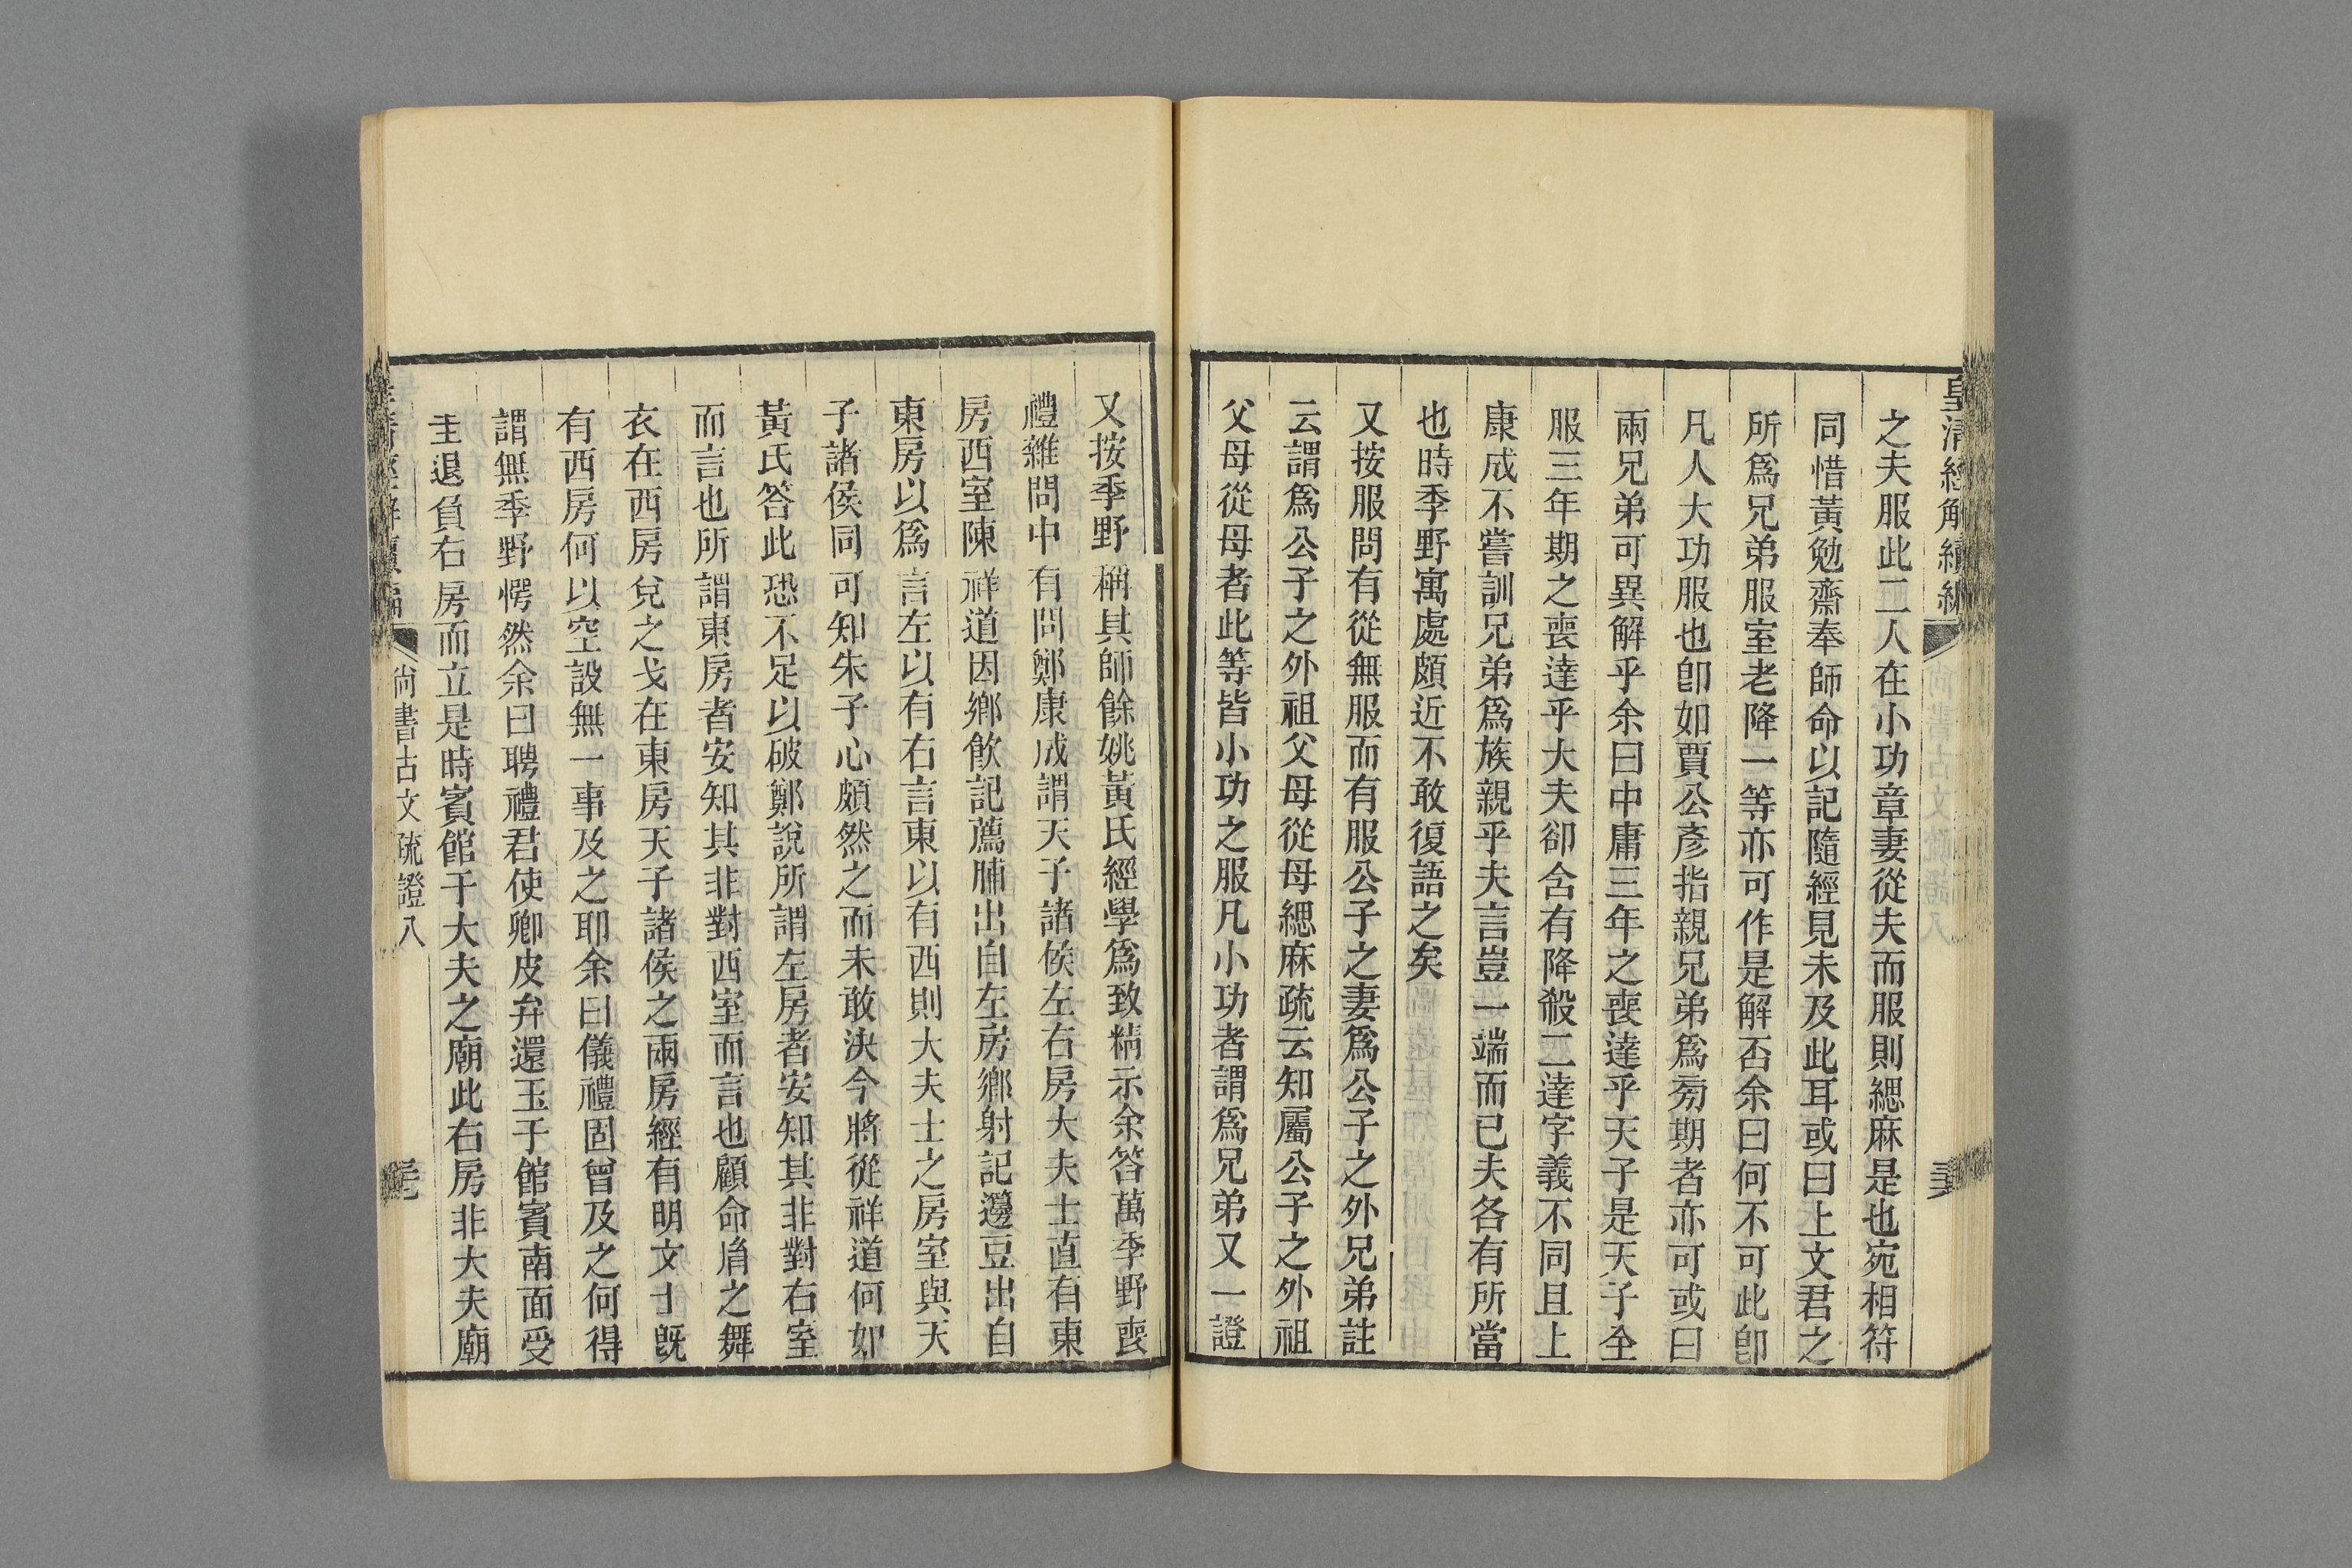 皇清經解續編
之夫服此二人在小功章妻從夫而服則緦麻是也宛相符
同惜黃勉齋奉師命以記隨經見未及此耳或曰上文君之
所爲兄弟服室老降一等亦可作是解否余曰何不可此卽
凡人大功服也卽如賈公彥指親兄弟爲旁期者亦可或曰
兩兄弟可異解乎余曰中庸三年之喪達乎天子是天子全
服三年期之喪達乎大夫卻含有降殺二達字義不同且上
康成不嘗訓兄弟爲族親乎夫言豈一端而已夫各有所當
也時季野寓處頗近不敢復語之矣
又按服問有從無服而有服公子之妻爲公子之外兄弟註
云謂爲公子之外祖父母從母緦麻疏云知屬公子之外祖
父母從母者此等皆小功之服凡小功者謂爲兄弟又一證
又按季野稱其師餘姚黃氏經學爲致精示余答萬季野喪
禮雜問中有問鄭康成謂天子諸侯左右房大夫士直有東
房西室陳祥道因鄉飲記薦脯出自左房鄉射記籩豆出自
東房以爲言左以有右言東以有西則大夫士之房室與天
子諸侯同可知朱子心頗然之而未敢決今將從祥道何如
黃氏答此恐不足以破鄭說所謂左房者安知其非對右室
而言也所謂東房者安知其非對西室而言也顧命胤之舞
衣在西房兌之戈在東房天子諸侯之兩房經有明文士旣
有西房何以空設無一事及之耶余曰儀禮固曾及之何得
謂無季野愕然余曰聘禮君使卿皮弁還玉于館賓南面受
圭退負右房而立是時賓館于大夫之廟此右房非大夫廟
尙書古文疏證八